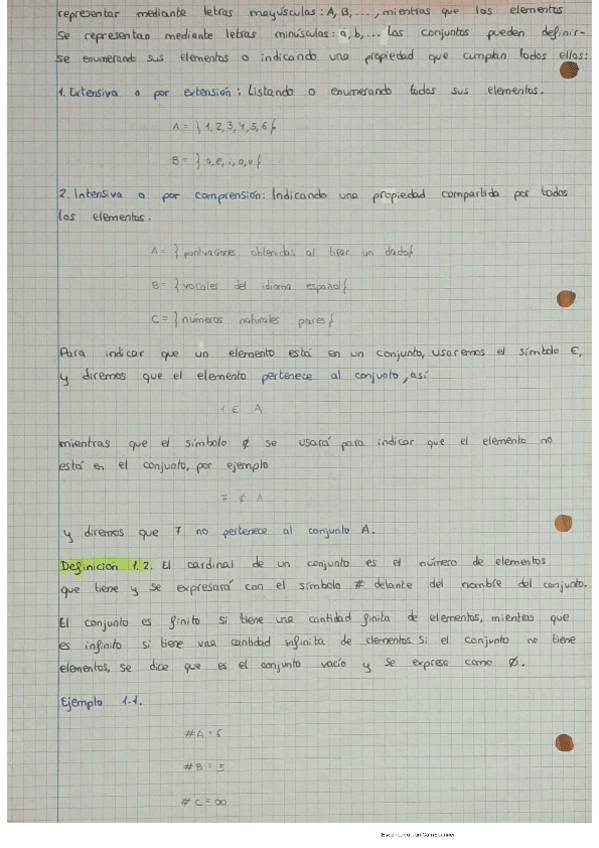 representar mediante letras mayúsculas: A, B, ..., mientras que los elementos
se representan mediante letras minúsculas: a, b, ... Los conjuntos pueden definir-
se enumerando sus elementos o indicando una propiedad que cumplan todos ellos:
1. Extensiva o por extensión: Listando o enumerando todos sus elementos.
A = }1,2,3,4,5,6{
B = }a,e,i,o,u{
2. Intensiva o por comprensión: Indicando una propiedad compartida por todos
los elementos.
A = }puntuaciones obtenidas al tirar un dado{
B = }vocales del idioma español{
C = }números naturales pares{
Para indicar que un elemento está en un conjunto, usaremos el símbolo ∈,
y diremos que el elemento pertenece al conjunto, así
1 ∈ A
mientras que el símbolo ∉ se usará para indicar que el elemento no
está en el conjunto, por ejemplo
7 ∉ A
y diremos que 7 no pertenece al conjunto A.
Definición 1.2. El cardinal de un conjunto es el número de elementos
que tiene y se expresará con el símbolo # delante del nombre del conjunto.
El conjunto es finito si tiene una cantidad finita de elementos, mientras que
es infinito si tiene una cantidad infinita de elementos. Si el conjunto no tiene
elementos, se dice que es el conjunto vacío y se expresa como ∅.
Ejemplo 1.1.
#A = 6
#B = 5
#C = ∞
Escaneado con CamScanner